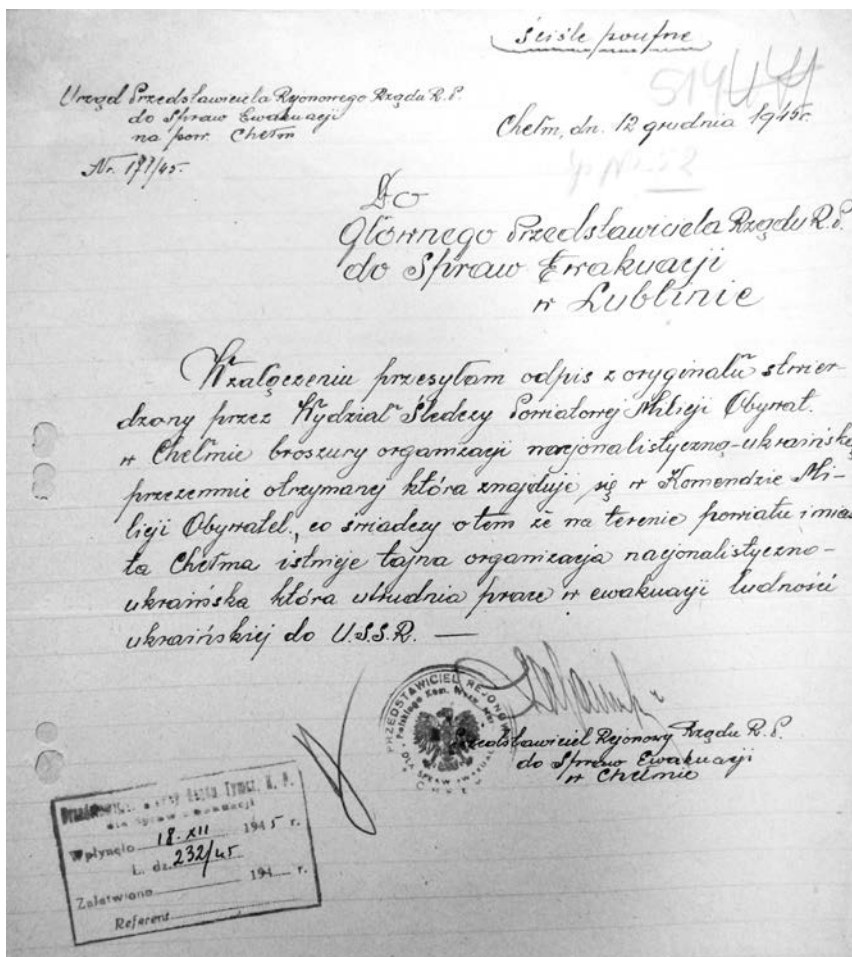 ściśle poufne
Urząd Przedstawiciela Rejonowego Rządu R.P.
do Spraw Ewakuacji
na pow. Chełm
Nr. 177/45.
Chełm, dn. 12 grudnia 1945r.
Do
Głównego Przedstawiciela Rządu R.P.
do Spraw Ewakuacji
w Lublinie
W załączeniu przesyłam odpis z oryginału stwier-
dzony przez Wydział Śledczy Powiatowej Milicji Obywat.
w Chełmie broszury organizacji nacjonalistyczno-ukraińskiej
przezemnie otrzymanej która znajduje się w Komendzie Mi-
licji Obywatel., co świadczy o tem że na terenie powiatu i mias
ta Chełma istnieje tajna organizacja nacjonalistyczno-
ukraińska która utrudnia prace w ewakuacji ludności
ukraińskiej do U.S.S.R. —
PRZEDSTAWICIEL REJONOWY
Przedstawiciel Rejonowy Rządu R.P.
do Spraw Ewakuacji
w Chełmie
Rządu Tymcz. R. P.
dla Spraw Ewakuacji
Wpłynęło 18. XII 1945 r.
L. dz. 232/45
Załatwiono 194 r.
Referent